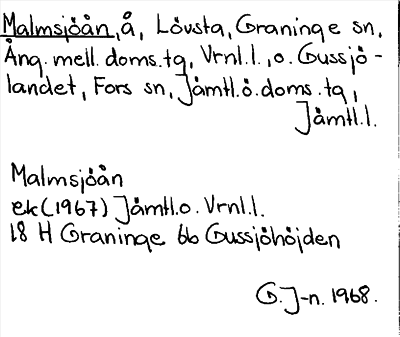 Malmsjöån, å, Lövsta, Graninge sn,
Ång. mell. doms. tg, Vrnl.l., o. Gussjö-
landet, Fors sn, Jämtl.ö. doms. tg,
Jämtl.l.
Malmsjöån
ek (1967) Jämtl. o. Vrnl.l.
18 H Graninge 6b Gussjöhöjden
G. J-n. 1968.